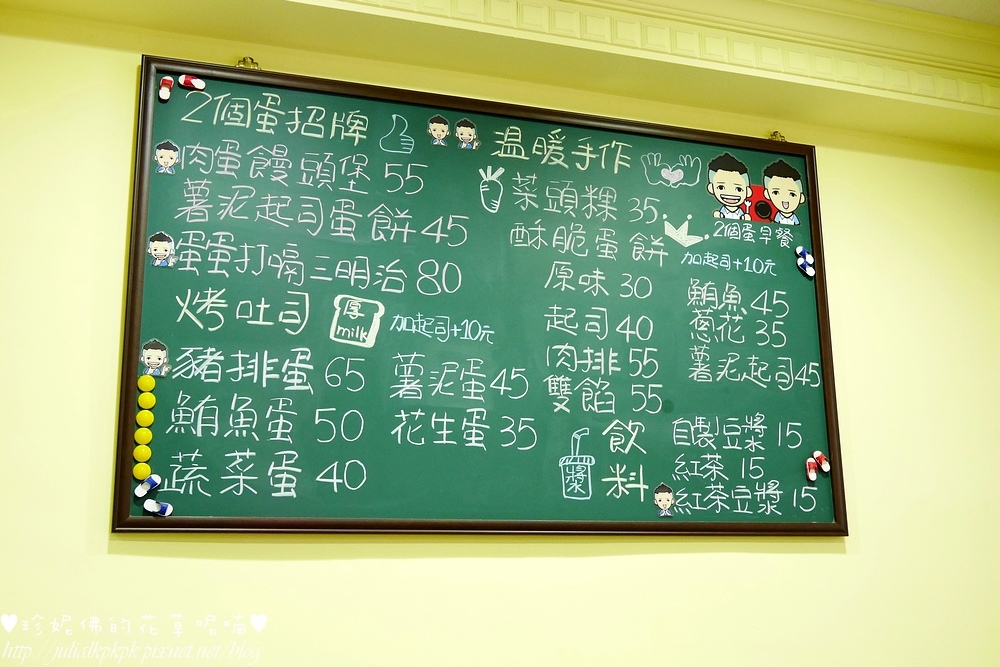 2個蛋招牌
肉蛋饅頭堡 55
薯泥起司蛋餅 45
蛋蛋打嗝三明治 80
烤吐司
厚
milk
加起司+10元
豬排蛋 65
鮪魚蛋 50
蔬菜蛋 40
薯泥蛋 45
花生蛋 35
温暖手作
菜頭粿 35
酥脆蛋餅
加起司+10元
2個蛋早餐
原味 30
起司 40
肉排 55
雙餡 55
鮪魚 45
蔥花 35
薯泥起司 45
飲料
漿
自製豆漿 15
紅茶 15
紅茶豆漿 15
♥珍妮佛的花草呢喃♥